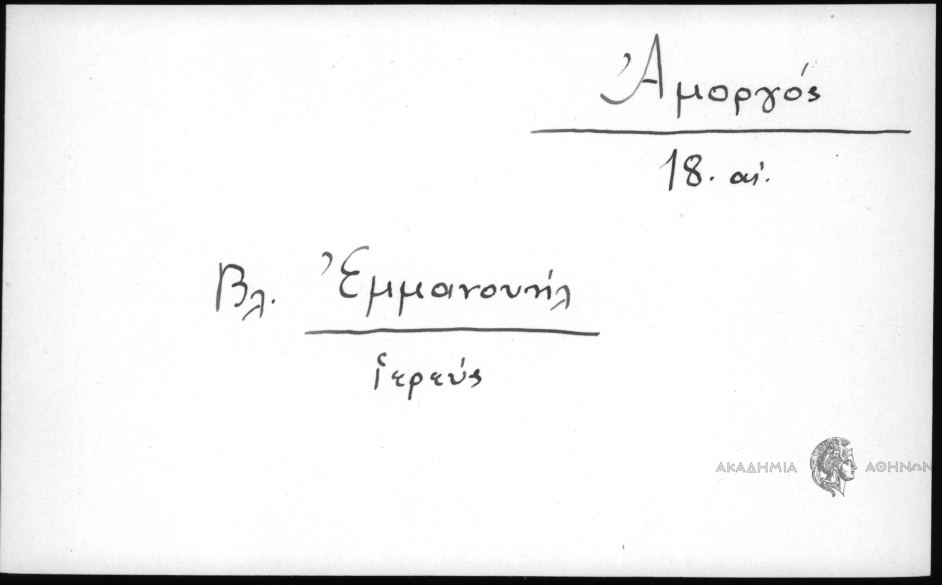 Ἀμοργός
18. αἰ.
Βλ. Ἐμμανουήλ
ἱερεύς
ΑΚΑΔΗΜΙΑ ΑΘΗΝΩΝ